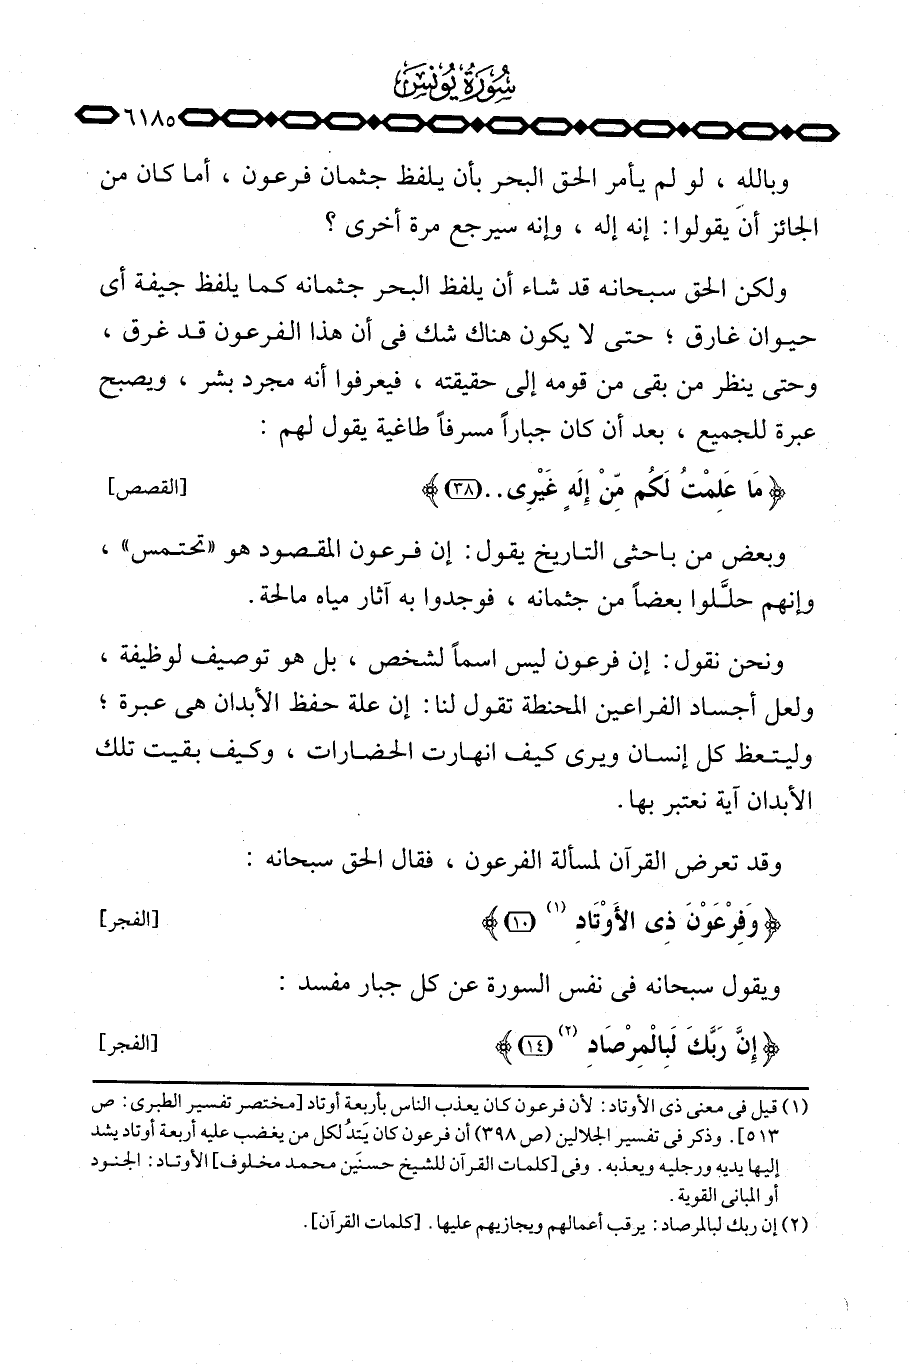 سُورَةُ يُونُسَ
٦١٨٥
وبالله ، لو لم يأمر الحق البحر بأن يلفظ جثمان فرعون ، أما كان من
الجائز أن يقولوا: إنه إله ، وإنه سيرجع مرة أخرى ؟
ولكن الحق سبحانه قد شاء أن يلفظ البحر جثمانه كما يلفظ جيفة أى
حيوان غارق ؛ حتى لا يكون هناك شك فى أن هذا الفرعون قد غرق ،
وحتى ينظر من بقى من قومه إلى حقيقته ، فيعرفوا أنه مجرد بشر ، ويصبح
عبرة للجميع ، بعد أن كان جباراً مسرفاً طاغية يقول لهم :
﴿ مَا عَلِمْتُ لَكُم مِّنْ إِلَهٍ غَيْرِى..(٣٨)﴾ [القصص]
وبعض من باحثى التاريخ يقول: إن فرعون المقصود هو «تحتمس» ،
وإنهم حلَّلوا بعضاً من جثمانه ، فوجدوا به آثار مياه مالحة.
ونحن نقول: إن فرعون ليس اسماً لشخص ، بل هو توصيف لوظيفة ،
ولعل أجساد الفراعين المحنطة تقول لنا: إن علة حفظ الأبدان هى عبرة ؛
وليتعظ كل إنسان ويرى كيف انهارت الحضارات ، وكيف بقيت تلك
الأبدان آية نعتبر بها.
وقد تعرض القرآن لمسألة الفرعون ، فقال الحق سبحانه :
﴿ وَفِرْعَوْنَ ذِى الأَوْتَادِ (١) (١٠)﴾ [الفجر]
ويقول سبحانه فى نفس السورة عن كل جبار مفسد :
﴿ إِنَّ رَبَّكَ لَبِالْمِرْصَادِ (٢) (١٤)﴾ [الفجر]
(١) قيل فى معنى ذى الأوتاد: لأن فرعون كان يعذب الناس بأربعة أوتاد [مختصر تفسير الطبرى: ص
٥١٣]. وذكر فى تفسير الجلالين (ص ٣٩٨) أن فرعون كان يَتدُ لكل من يغضب عليه أربعة أوتاد يشد
إليها يديه ورجليه ويعذبه. وفى [كلمات القرآن للشيخ حسنَين محمد مخلوف] الأوتاد: الجنود
أو المبانى القوية.
(٢) إن ربك لبالمرصاد: يرقب أعمالهم ويجازيهم عليها. [كلمات القرآن].